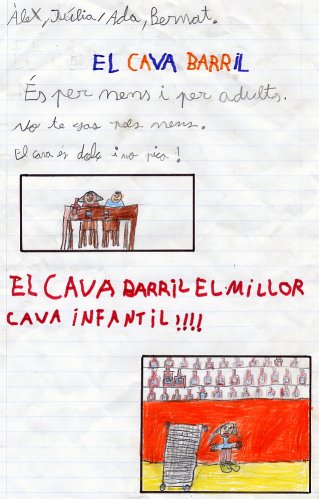 Àlex, Júlia/Ada, Bernat.
EL CAVA BARRIL
És per nens i per adults.
No te gas pels nens.
El cava és dolç i no pica!
EL CAVA BARRIL EL MILLOR
CAVA INFANTIL!!!!